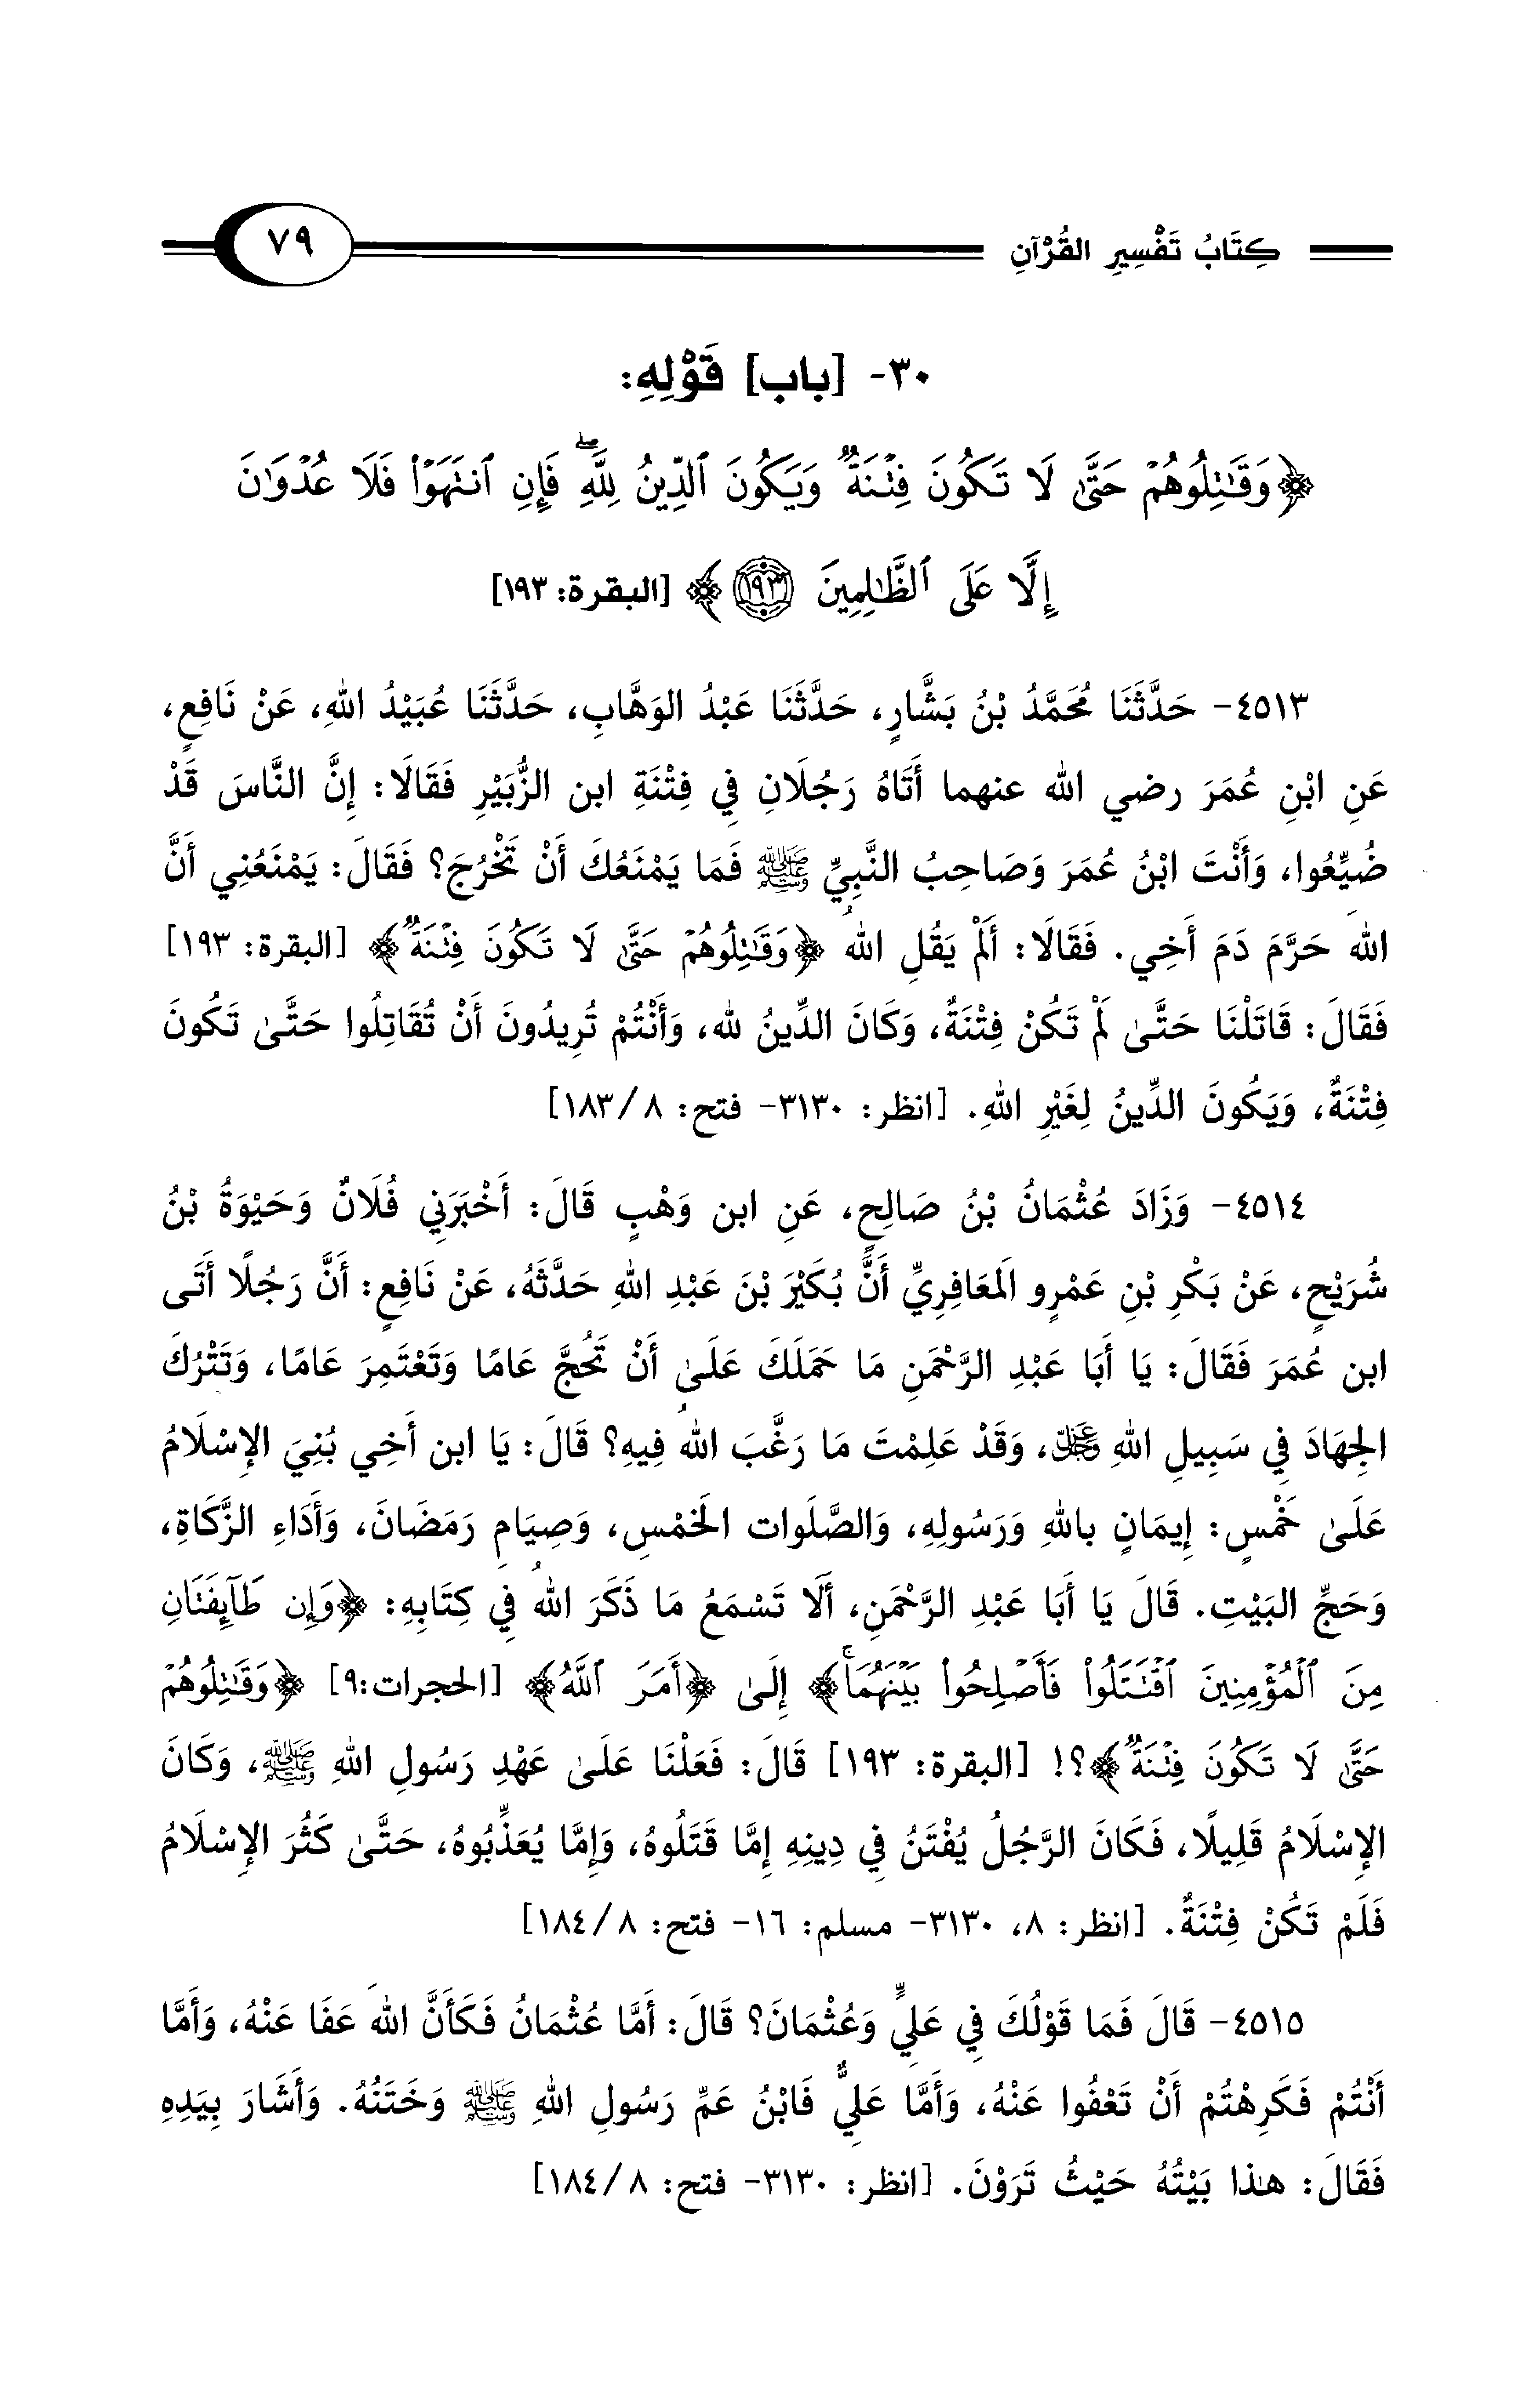 كِتَابُ تَفْسِيرِ القُرْآنِ
٧٩
٣٠- [باب] قَوْلِهِ:
﴿وَقَٰتِلُوهُمْ حَتَّىٰ لَا تَكُونَ فِتْنَةٌ وَيَكُونَ ٱلدِّينُ لِلَّهِ ۖ فَإِنِ ٱنتَهَوْا۟ فَلَا عُدْوَٰنَ
إِلَّا عَلَى ٱلظَّٰلِمِينَ ١٩٣﴾ [البقرة: ١٩٣]
٤٥١٣- حَدَّثَنَا مُحَمَّدُ بْنُ بَشَّارٍ، حَدَّثَنَا عَبْدُ الوَهَّابِ، حَدَّثَنَا عُبَيْدُ اللهِ، عَنْ نَافِعٍ،
عَنِ ابْنِ عُمَرَ رضي الله عنهما أَتَاهُ رَجُلَانِ فِي فِتْنَةِ ابن الزُّبَيْرِ فَقَالَا: إِنَّ النَّاسَ قَدْ
ضُيِّعُوا، وَأَنْتَ ابْنُ عُمَرَ وَصَاحِبُ النَّبِيِّ ﷺ فَمَا يَمْنَعُكَ أَنْ تَخْرُجَ؟ فَقَالَ: يَمْنَعُنِي أَنَّ
اللهَ حَرَّمَ دَمَ أَخِي. فَقَالَا: أَلَمْ يَقُلِ اللهُ ﴿وَقَٰتِلُوهُمْ حَتَّىٰ لَا تَكُونَ فِتْنَةٌ﴾ [البقرة: ١٩٣]
فَقَالَ: قَاتَلْنَا حَتَّىٰ لَمْ تَكُنْ فِتْنَةٌ، وَكَانَ الدِّينُ لله، وَأَنْتُمْ تُرِيدُونَ أَنْ تُقَاتِلُوا حَتَّىٰ تَكُونَ
فِتْنَةٌ، وَيَكُونَ الدِّينُ لِغَيْرِ اللهِ. [انظر: ٣١٣٠- فتح: ٨/١٨٣]
٤٥١٤- وَزَادَ عُثْمَانُ بْنُ صَالِحٍ، عَنِ ابن وَهْبٍ قَالَ: أَخْبَرَنِي فُلَانٌ وَحَيْوَةُ بْنُ
شُرَيْحٍ، عَنْ بَكْرِ بْنِ عَمْرٍو الَمعَافِرِيِّ أَنَّ بُكَيْرَ بْنَ عَبْدِ اللهِ حَدَّثَهُ، عَنْ نَافِعٍ: أَنَّ رَجُلًا أَتَى
ابن عُمَرَ فَقَالَ: يَا أَبَا عَبْدِ الرَّحْمَنِ مَا حَمَلَكَ عَلَىٰ أَنْ تَحُجَّ عَامًا وَتَعْتَمِرَ عَامًا، وَتَتْرُكَ
الجِهَادَ فِي سَبِيلِ اللهِ عز وجل، وَقَدْ عَلِمْتَ مَا رَغَّبَ اللهُ فِيهِ؟ قَالَ: يَا ابن أَخِي بُنِيَ الإِسْلَامُ
عَلَىٰ خَمْسٍ: إِيمَانٍ باللهِ وَرَسُولِهِ، وَالصَّلَوات الَخمْسِ، وَصِيَامِ رَمَضَانَ، وَأَدَاءِ الزَّكَاةِ،
وَحَجِّ البَيْتِ. قَالَ يَا أَبَا عَبْدِ الرَّحْمَنِ، أَلَا تَسْمَعُ مَا ذَكَرَ اللهُ فِي كِتَابِهِ: ﴿وَإِن طَآئِفَتَانِ
مِنَ ٱلْمُؤْمِنِينَ ٱقْتَتَلُوا۟ فَأَصْلِحُوا۟ بَيْنَهُمَا ۚ﴾ إِلَىٰ ﴿أَمَرَ ٱللَّهُ﴾ [الحجرات:٩] ﴿وَقَٰتِلُوهُمْ
حَتَّىٰ لَا تَكُونَ فِتْنَةٌ﴾؟! [البقرة: ١٩٣] قَالَ: فَعَلْنَا عَلَىٰ عَهْدِ رَسُولِ اللهِ ﷺ، وَكَانَ
الإِسْلَامُ قَلِيلًا، فَكَانَ الرَّجُلُ يُفْتَنُ فِي دِينِهِ إِمَّا قَتَلُوهُ، وَإِمَّا يُعَذِّبُوهُ، حَتَّىٰ كَثُرَ الإِسْلَامُ
فَلَمْ تَكُنْ فِتْنَةٌ. [انظر: ٨، ٣١٣٠- مسلم: ١٦- فتح: ٨/١٨٤]
٤٥١٥- قَالَ فَمَا قَوْلُكَ فِي عَلِيٍّ وَعُثْمَانَ؟ قَالَ: أَمَّا عُثْمَانُ فَكَأَنَّ اللهَ عَفَا عَنْهُ، وَأَمَّا
أَنْتُمْ فَكَرِهْتُمْ أَنْ تَعْفُوا عَنْهُ، وَأَمَّا عَلِيٌّ فَابْنُ عَمِّ رَسُولِ اللهِ ﷺ وَخَتَنُهُ. وَأَشَارَ بِيَدِهِ
فَقَالَ: هٰذا بَيْتُهُ حَيْثُ تَرَوْنَ. [انظر: ٣١٣٠- فتح: ٨/١٨٤]